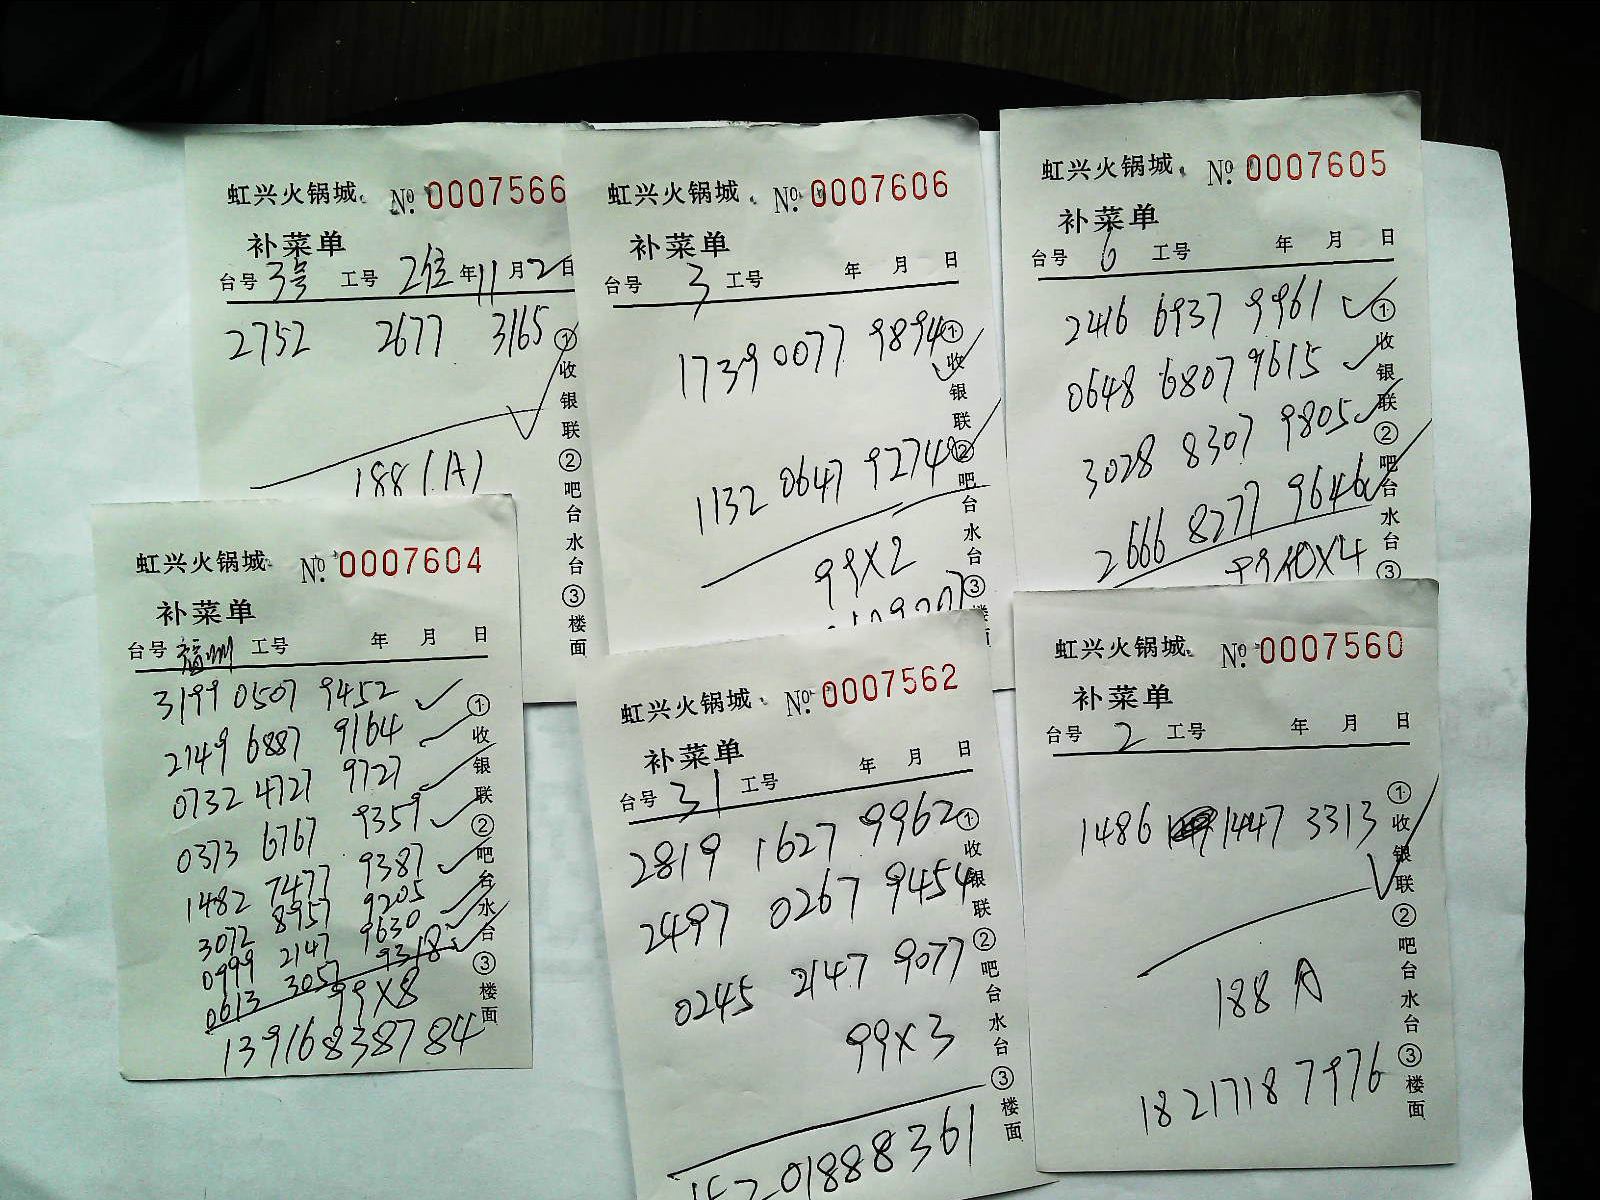 虹兴火锅城 No. 0007566
补菜单
台号 3号 工号 2位 年 11 月 2 日
2752 2677 3165
188(A)
①收银联②吧台水台③楼面
虹兴火锅城 No. 0007606
补菜单
台号 3 工号 年 月 日
1739 0077 9894
1132 0647 9274
99X2
①收银联②吧台水台③楼面
虹兴火锅城 No. 0007605
补菜单
台号 6 工号 年 月 日
2416 6937 9961
0648 6807 9615
3028 8307 9805
2666 8277 9646
X4
①收银联②吧台水台③
虹兴火锅城 No. 0007604
补菜单
台号 福州 工号 年 月 日
3199 0507 9452
2149 6887 9164
0732 4727 9727
0373 6767 9359
1482 7477 9387
3072 8957 9205
0999 2147 9630
0613 3057 9318
99X8
13916838784
①收银联②吧台水台③楼面
虹兴火锅城 No. 0007562
补菜单
台号 31 工号 年 月 日
2819 1627 9962
2497 0267 9454
0245 2147 9077
99X3
01888361
①收银联②吧台水台③楼面
虹兴火锅城 No. 0007560
补菜单
台号 2 工号 年 月 日
1486 1447 3313
188 A
18217187976
①收银联②吧台水台③楼面